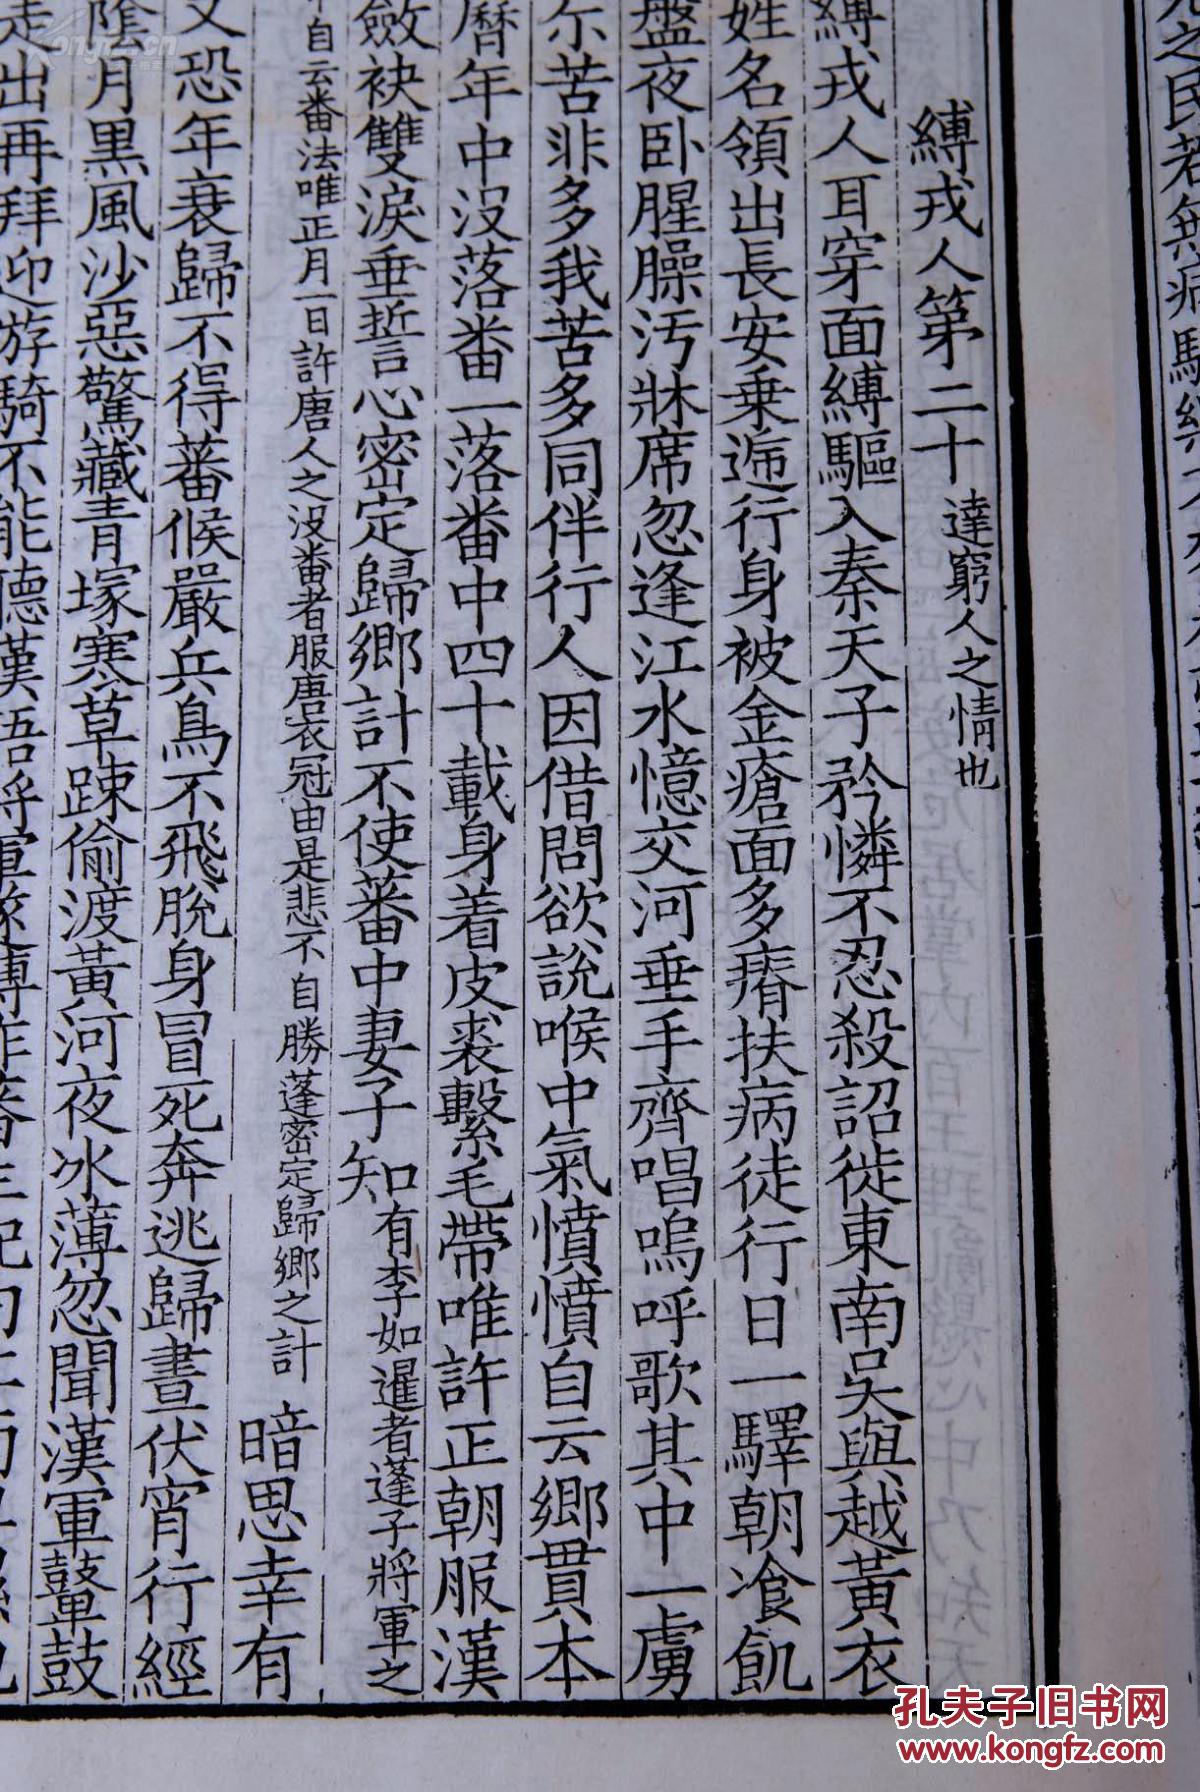 元之民若無病驅
縛戎人第二十 達窮人之情也
縛戎人耳穿面縛驅入秦天子矜憐不忍殺詔徙東南吳與越黃衣
姓名領出長安乗逓行身被金瘡面多瘠扶病徒行日一驛朝飡飢
盤夜卧腥臊汚牀席忽逢江水憶交河垂手齊唱嗚呼歌其中一虜
尒苦非多我苦多同伴行人因借問欲說喉中氣憤憤自云鄉貫本
曆年中沒落番一落番中四十載身着皮裘繫毛帶唯許正朝服漢
斂袂雙淚垂誓心密定歸鄉計不使蕃中妻子知 有李如暹者蓬子將軍之
自云番法唯正月一日許唐人之沒番者服唐衣冠由是悲不自勝蓬密定歸鄉之計 暗思幸有
又恐年衰歸不得蕃候嚴兵鳥不飛脫身冒死奔逃歸晝伏宵行經
陰月黒風沙惡驚藏青塚寒草踈偷渡黃河夜冰薄忽聞漢軍鼙鼓
走出再拜迎游騎不能聽漢語將軍遂縛作蕃生
Kongfz.cn
孔夫子旧书网
www.kongfz.com